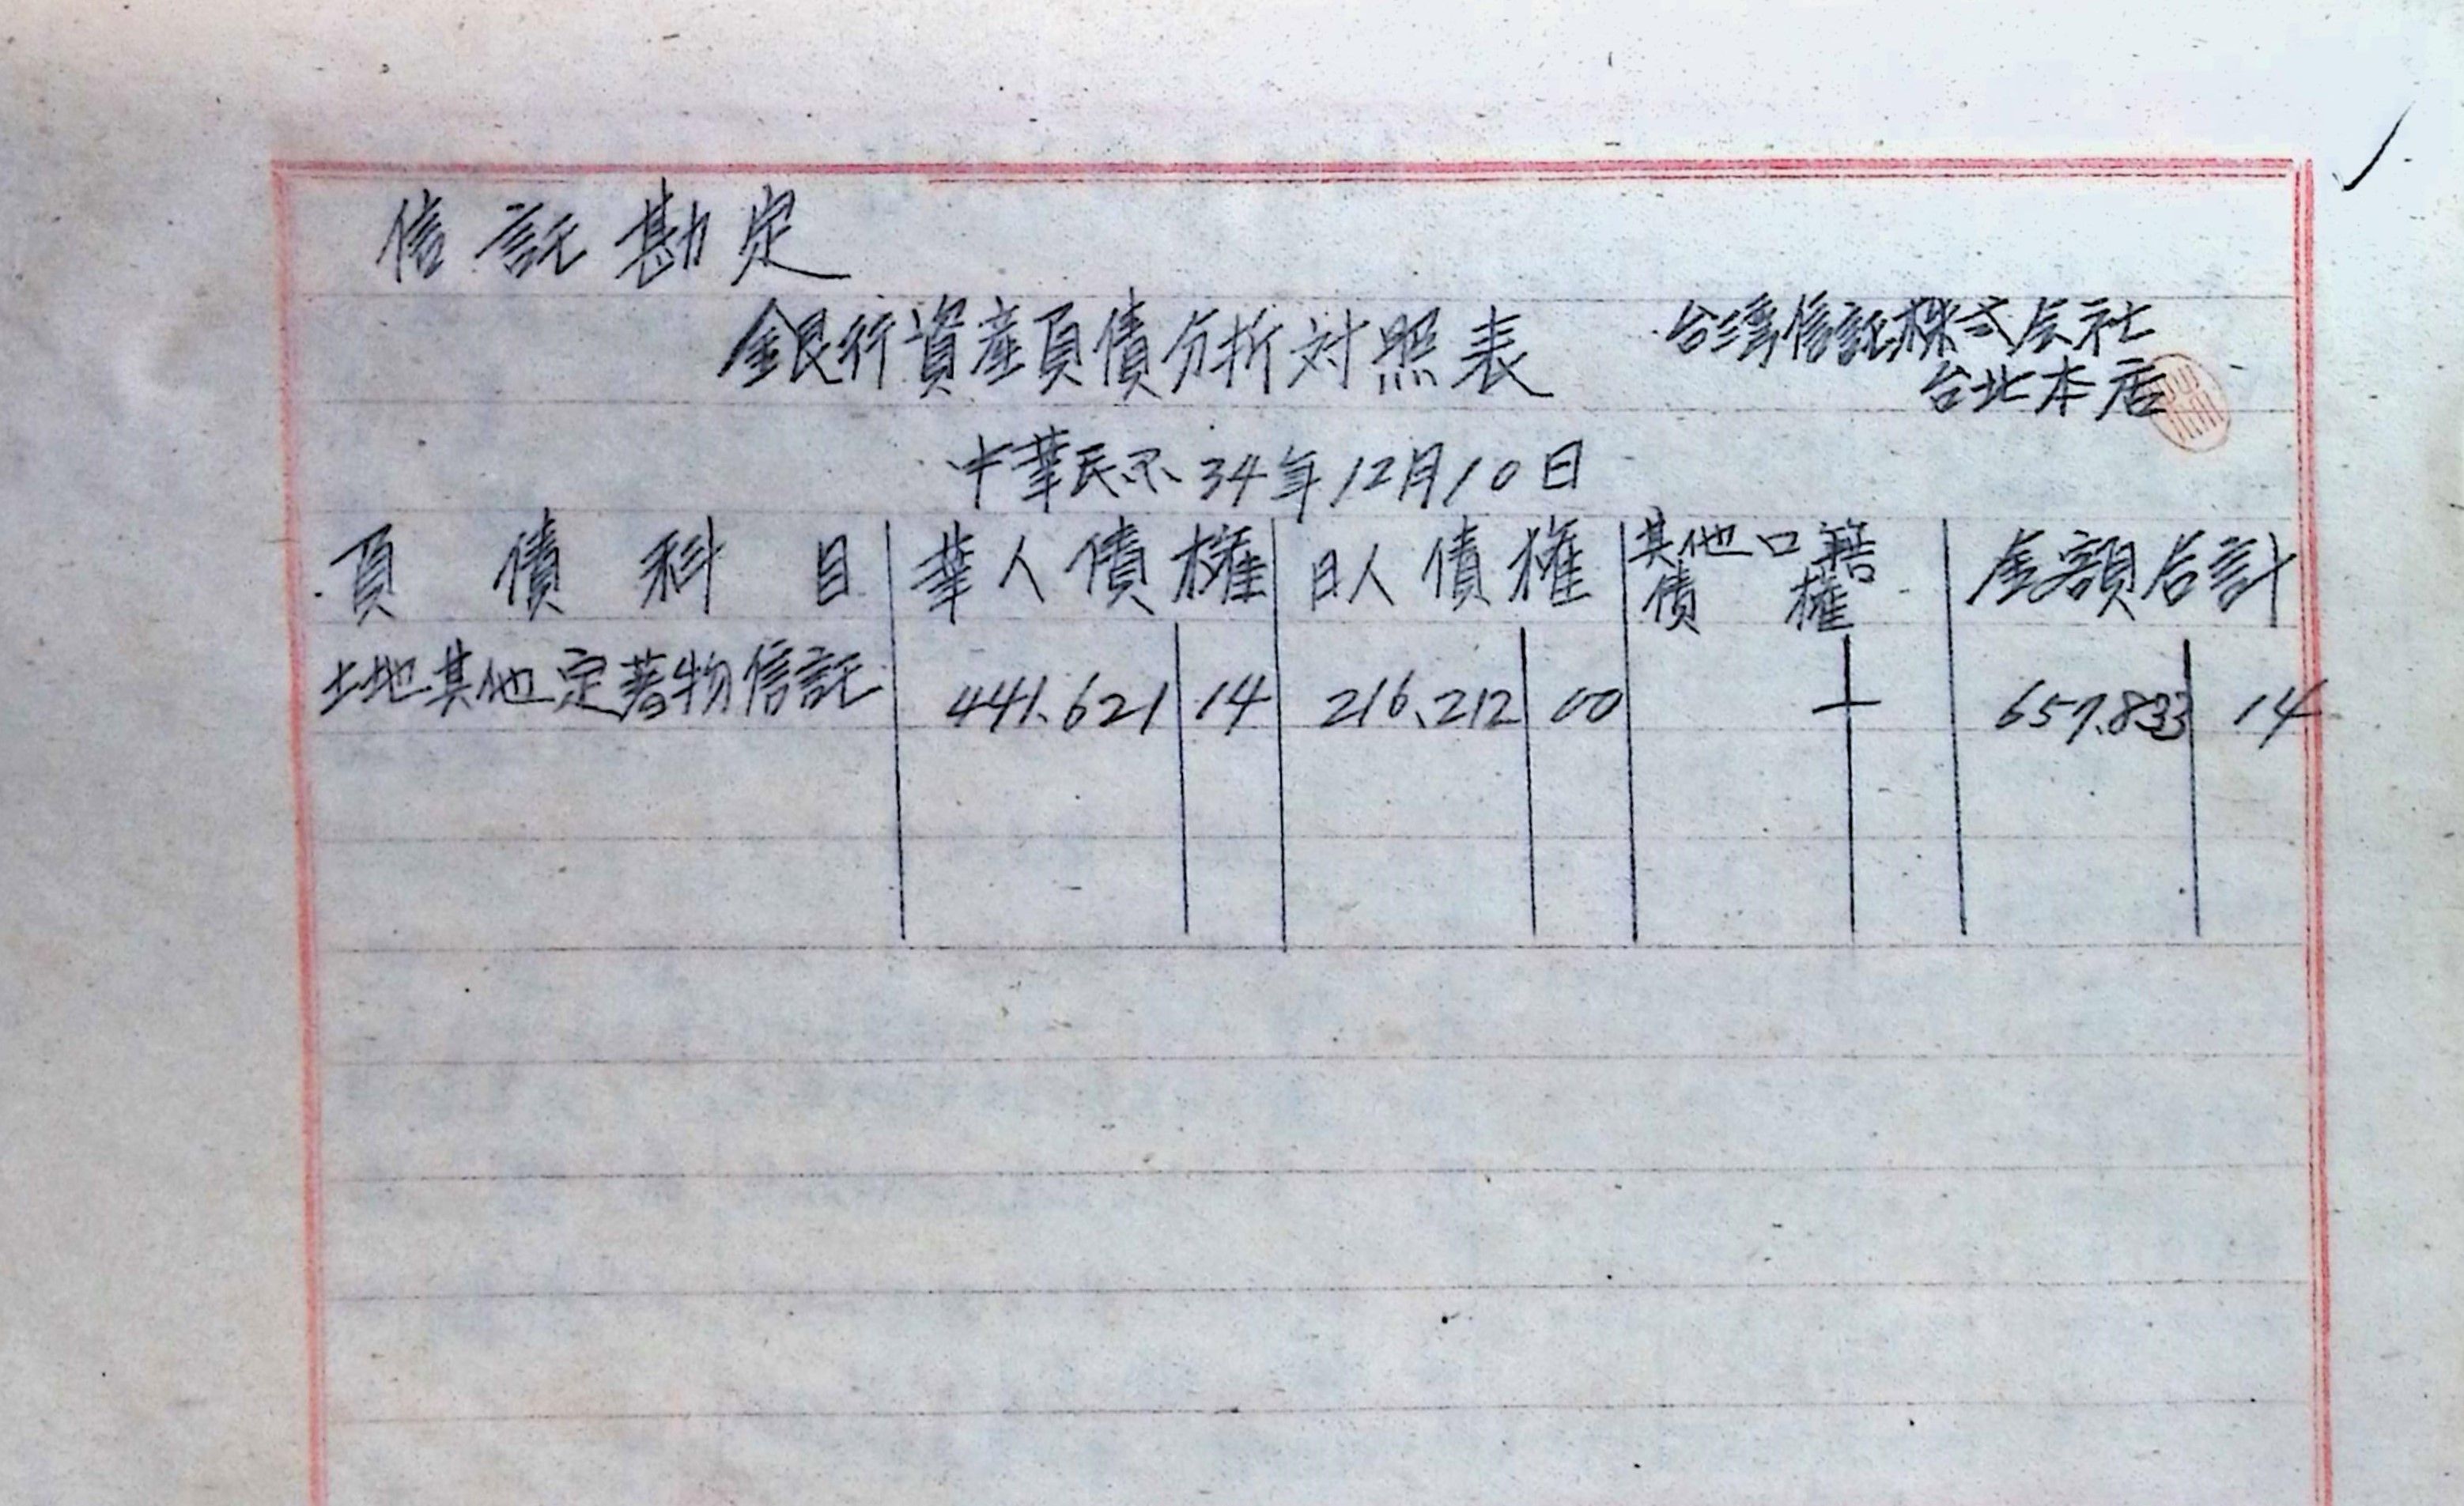 信託勘定
銀行資産負債分析対照表
台湾信託株式会社
台北本店
中華民国34年12月10日
負債科目 華人債権 日人債権 其他口籍債権 金額合計
土地其他定著物信託 441,621 14 216,212 00 — 657,833 14